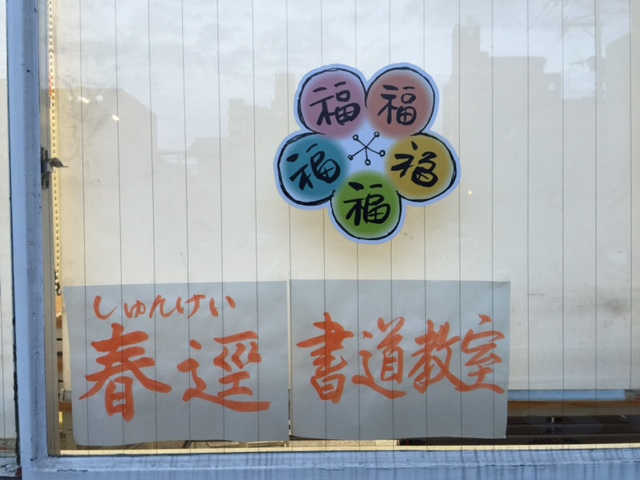 福 福
福 福
福
しゅんけい
春逕 書道教室